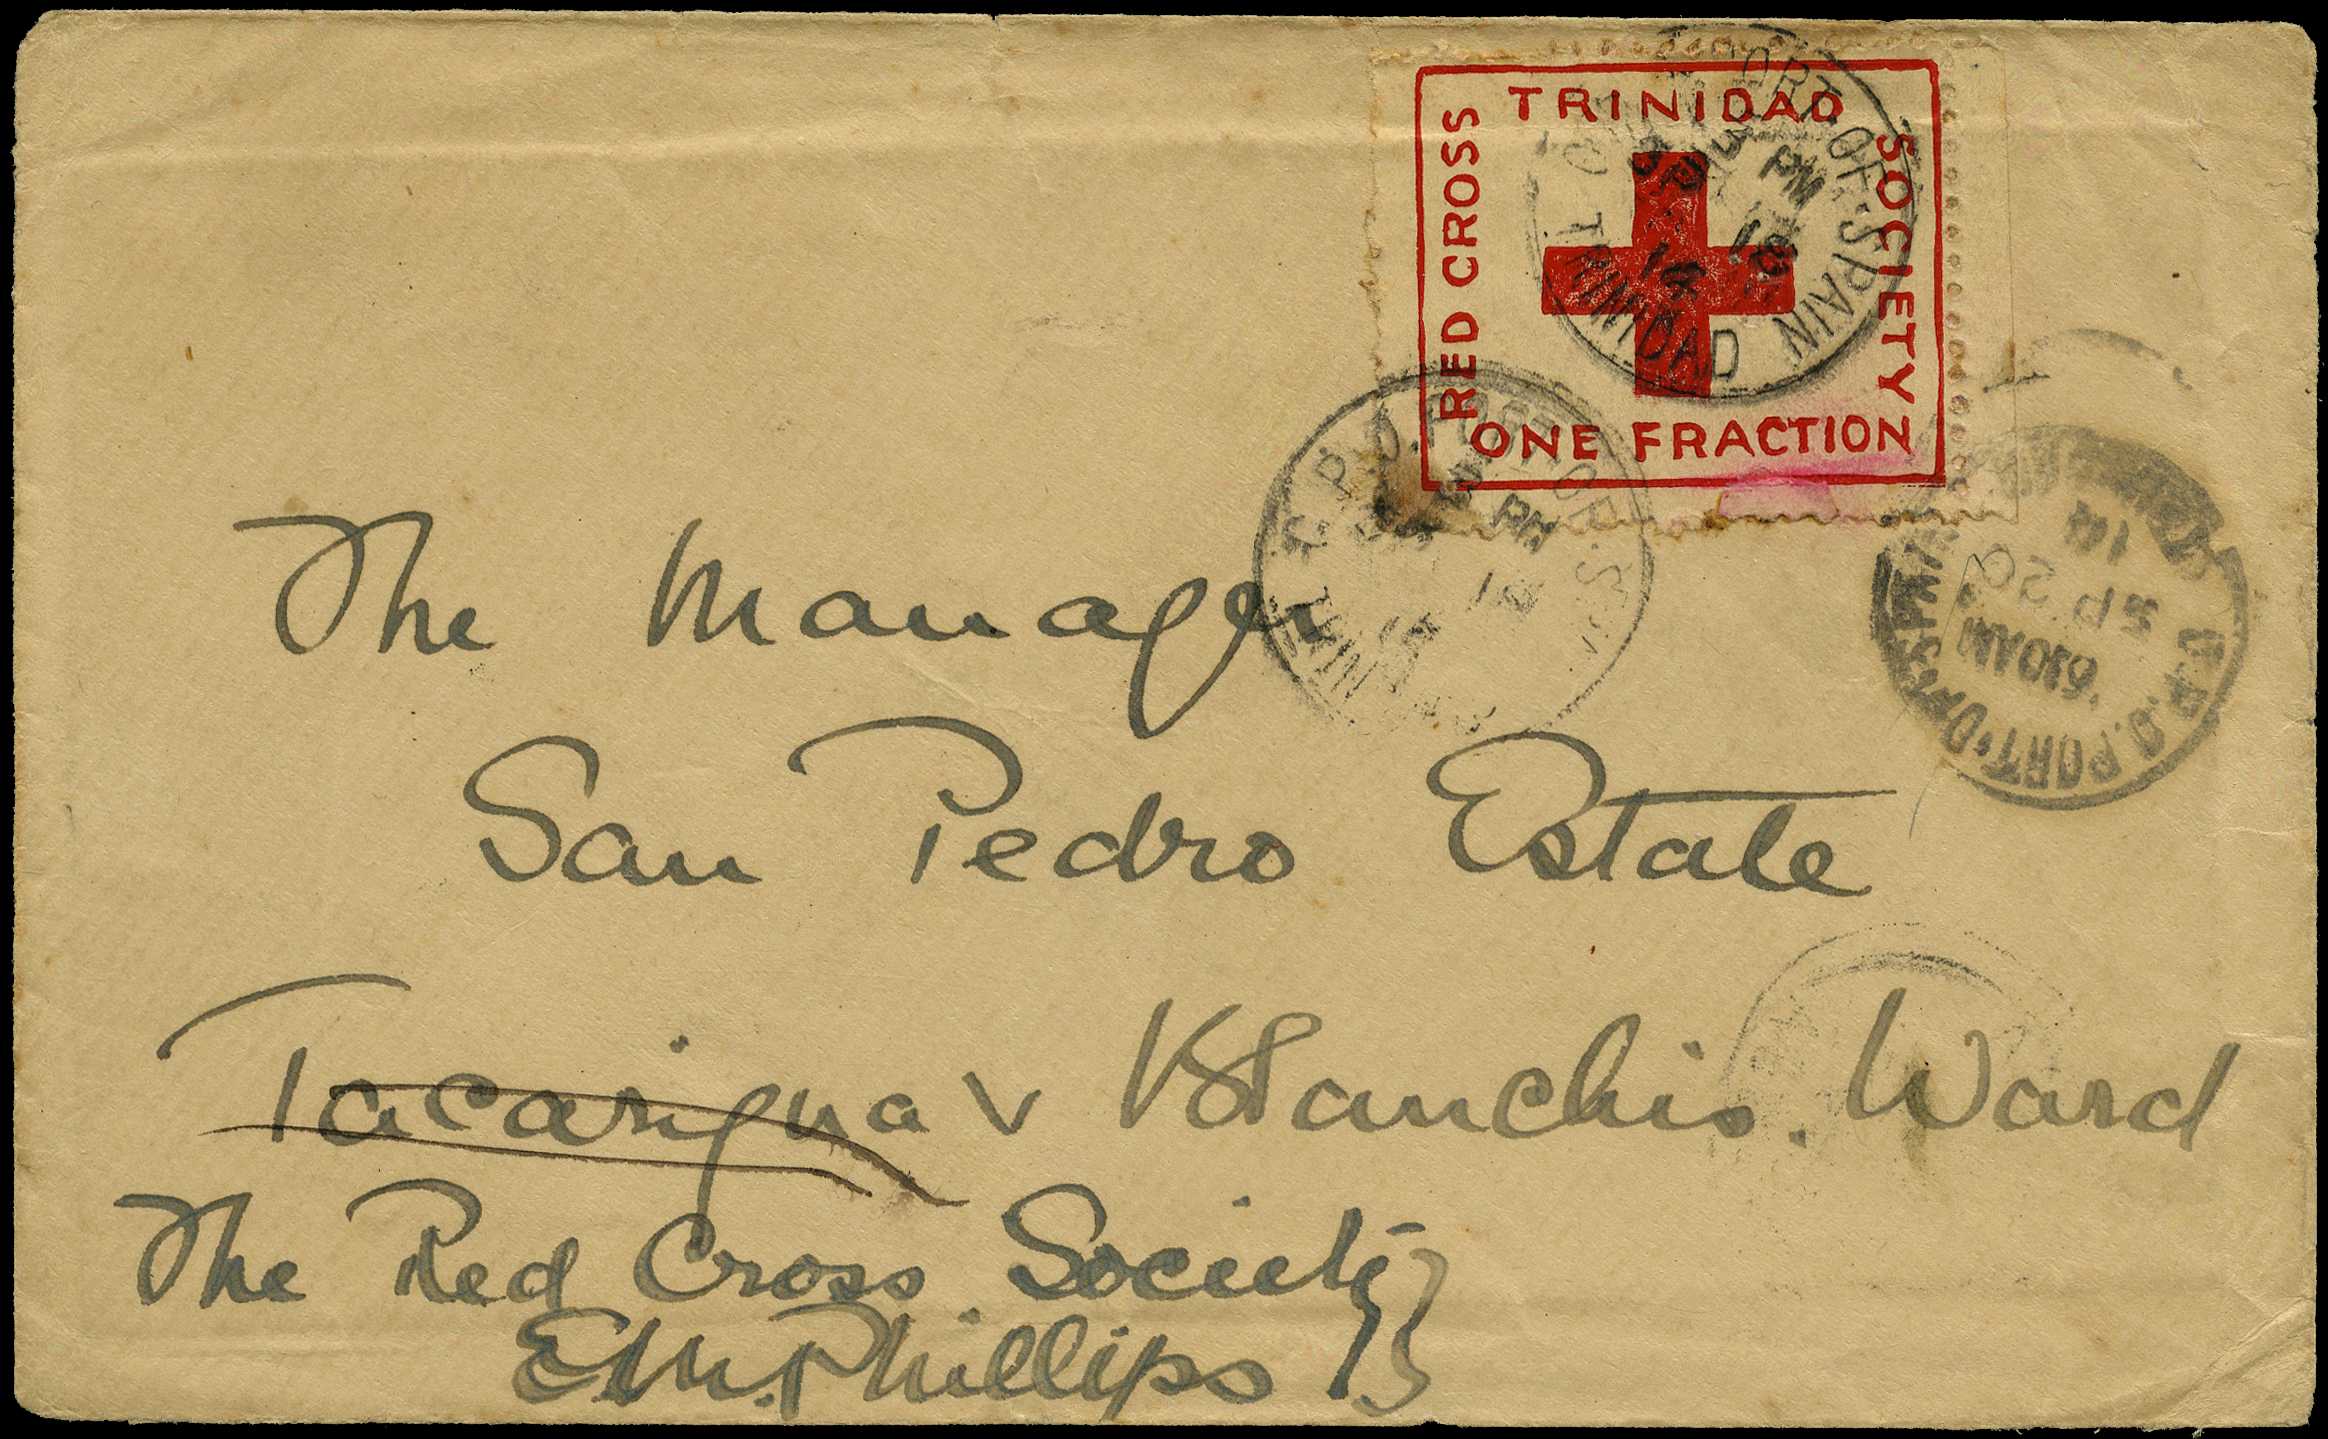 TRINIDAD
RED CROSS
SOCIETY
ONE FRACTION
G.P.O. PORT-OF-SPAIN
TRINIDAD
SP
PM
18
14
G.P.O. PORT OF S
PM
G.P.O. PORT OF SPAIN
6.20AM
SP 20
14
The Manager
San Pedro Estate
Tacarigua v Blanchis. Ward
The Red Cross Society
E.M. Phillips